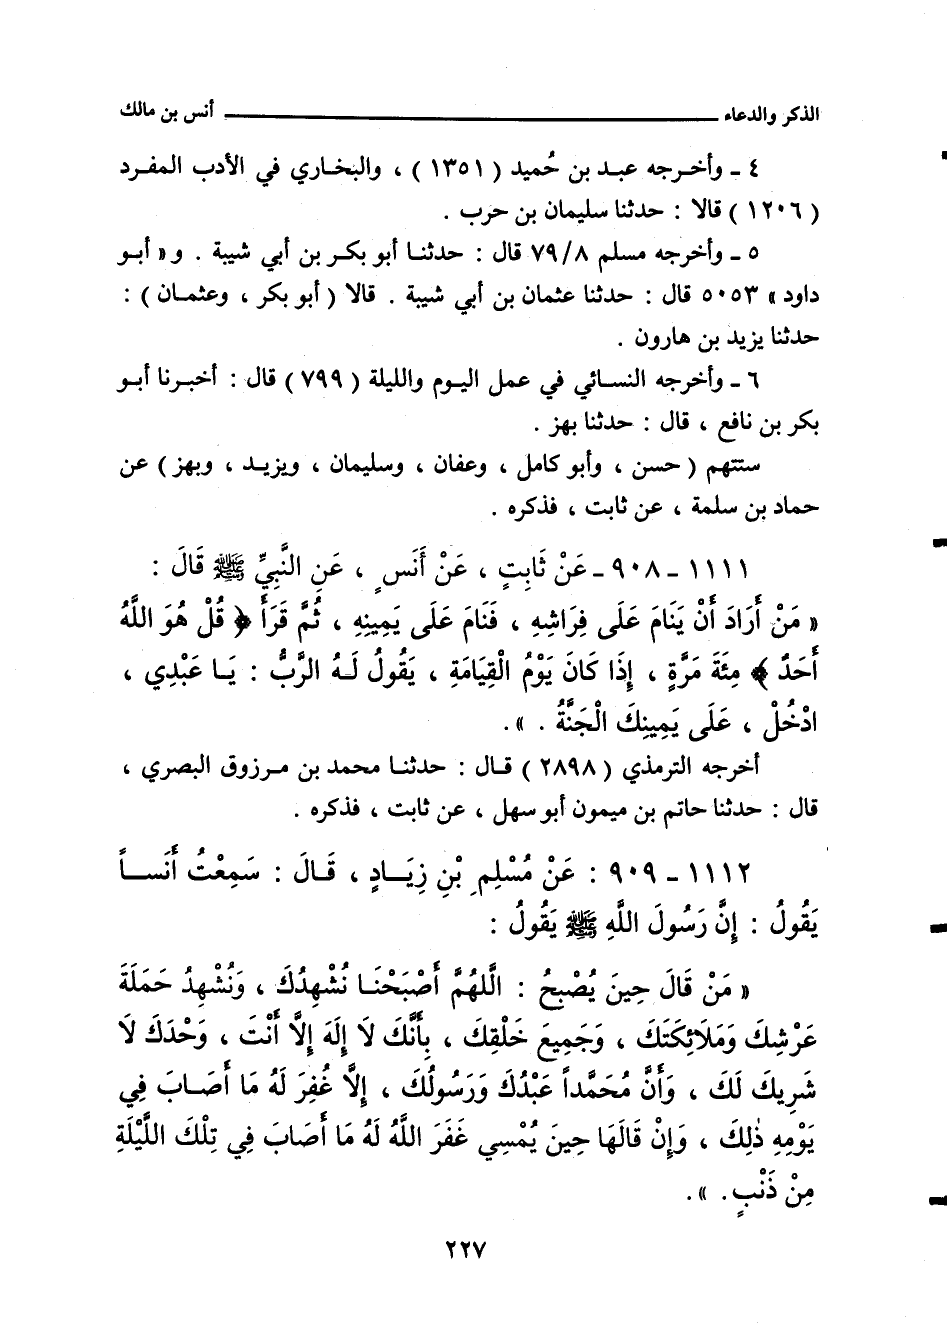 الذكر والدعاء ــــــــــــــــــــــــــــــــــــــــ أنس بن مالك
٤ ـ وأخرجه عبد بن حُميد (١٣٥١) ، والبخاري في الأدب المفرد
(١٢٠٦) قالا : حدثنا سليمان بن حرب .
٥ ـ وأخرجه مسلم ٧٩/٨ قال : حدثنا أبو بكر بن أبي شيبة . و« أبو
داود » ٥٠٥٣ قال : حدثنا عثمان بن أبي شيبة . قالا (أبو بكر ، وعثمان) :
حدثنا يزيد بن هارون .
٦ ـ وأخرجه النسائي في عمل اليوم والليلة (٧٩٩) قال : أخبرنا أبو
بكر بن نافع ، قال : حدثنا بهز .
ستتهم (حسن ، وأبو كامل ، وعفان ، وسليمان ، ويزيد ، وبهز) عن
حماد بن سلمة ، عن ثابت ، فذكره .
١١١١ ـ ٩٠٨ ـ عَنْ ثَابِتٍ ، عَنْ أَنَسٍ ، عَنِ النَّبِيِّ ﷺ قَالَ :
« مَنْ أَرَادَ أَنْ يَنَامَ عَلَى فِرَاشِهِ ، فَنَامَ عَلَى يَمِينِهِ ، ثُمَّ قَرَأَ ﴿ قُلْ هُوَ اللَّهُ
أَحَدٌ ﴾ مِئَةَ مَرَّةٍ ، إِذَا كَانَ يَوْمُ الْقِيَامَةِ ، يَقُولُ لَهُ الرَّبُّ : يَا عَبْدِي ،
ادْخُلْ ، عَلَى يَمِينِكَ الْجَنَّةُ . ».
أخرجه الترمذي (٢٨٩٨) قال : حدثنا محمد بن مرزوق البصري ،
قال : حدثنا حاتم بن ميمون أبو سهل ، عن ثابت ، فذكره .
١١١٢ ـ ٩٠٩ : عَنْ مُسْلِمِ بْنِ زِيَادٍ ، قَالَ : سَمِعْتُ أَنَساً
يَقُولُ : إِنَّ رَسُولَ اللَّهِ ﷺ يَقُولُ :
« مَنْ قَالَ حِينَ يُصْبِحُ : الَّلهُمَّ أَصْبَحْنَا نُشْهِدُكَ ، وَنُشْهِدُ حَمَلَةَ
عَرْشِكَ وَمَلَائِكَتَكَ ، وَجَمِيعَ خَلْقِكَ ، بِأَنَّكَ لَا إِلَهَ إِلَّا أَنْتَ ، وَحْدَكَ لَا
شَرِيكَ لَكَ ، وَأَنَّ مُحَمَّداً عَبْدُكَ وَرَسُولُكَ ، إِلَّا غُفِرَ لَهُ مَا أَصَابَ فِي
يَوْمِهِ ذٰلِكَ ، وَإِنْ قَالَهَا حِينَ يُمْسِي غَفَرَ اللَّهُ لَهُ مَا أَصَابَ فِي تِلْكَ اللَّيْلَةِ
مِنْ ذَنْبٍ . ».
٢٢٧